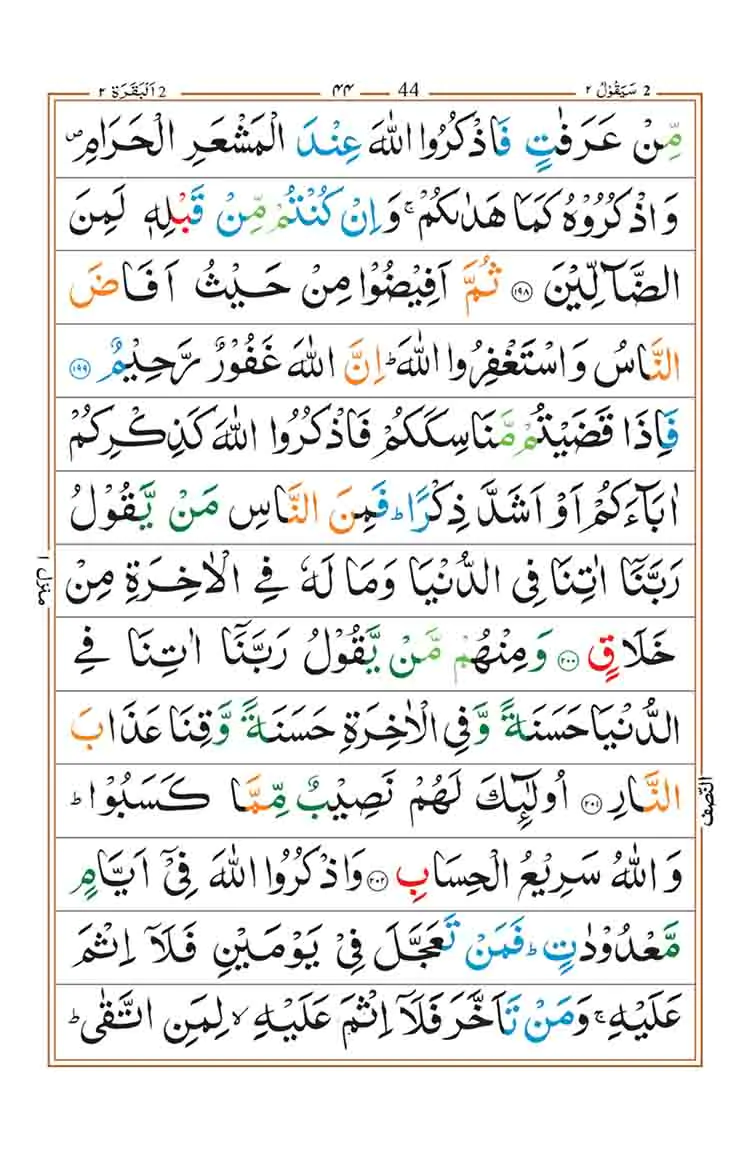 2 سَيَقُوۡلُ ٢ — 44 — ٤٤ — 2 اَلۡبَقَرَة ٢
مِّنۡ عَرَفٰتٍ فَاذۡكُرُوا اللّٰهَ عِنۡدَ الۡمَشۡعَرِ الۡحَرَامِ ۖ
وَاذۡكُرُوۡهُ كَمَا هَدٰٮكُمۡ ۚ وَاِنۡ كُنۡتُمۡ مِّنۡ قَبۡلِهٖ لَمِنَ
الضَّآلِّيۡنَ ﴿۱۹۸﴾ ثُمَّ اَفِيۡضُوۡا مِنۡ حَيۡثُ اَفَاضَ
النَّاسُ وَاسۡتَغۡفِرُوا اللّٰهَ ؕ اِنَّ اللّٰهَ غَفُوۡرٌ رَّحِيۡمٌ ﴿۱۹۹﴾
فَاِذَا قَضَيۡتُمۡ مَّنَاسِكَكُمۡ فَاذۡكُرُوا اللّٰهَ كَذِكۡرِكُمۡ
اٰبَآءَكُمۡ اَوۡ اَشَدَّ ذِكۡرًا ؕ فَمِنَ النَّاسِ مَنۡ يَّقُوۡلُ
رَبَّنَآ اٰتِنَا فِى الدُّنۡيَا وَمَا لَهٗ فِى الۡاٰخِرَةِ مِنۡ
خَلَاقٍ ﴿۲۰۰﴾ وَمِنۡهُمۡ مَّنۡ يَّقُوۡلُ رَبَّنَآ اٰتِنَا فِى
الدُّنۡيَا حَسَنَةً وَّفِى الۡاٰخِرَةِ حَسَنَةً وَّقِنَا عَذَابَ
النَّارِ ﴿۲۰۱﴾ اُولٰٓٮِٕكَ لَهُمۡ نَصِيۡبٌ مِّمَّا كَسَبُوۡا ؕ
وَاللّٰهُ سَرِيۡعُ الۡحِسَابِ ﴿۲۰۲﴾ وَاذۡكُرُوا اللّٰهَ فِىۡٓ اَيَّامٍ
مَّعۡدُوۡدٰتٍ ؕ فَمَنۡ تَعَجَّلَ فِىۡ يَوۡمَيۡنِ فَلَاۤ اِثۡمَ
عَلَيۡهِ ۚ وَمَنۡ تَاَخَّرَ فَلَاۤ اِثۡمَ عَلَيۡهِ ۙ لِمَنِ اتَّقٰى ؕ
منزل ١
النّصف